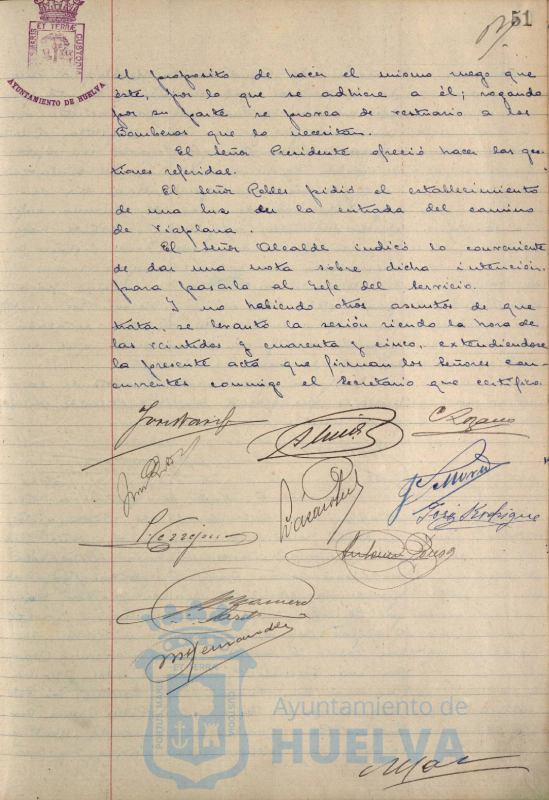 51
ET TERRAE
CUSTODIA
AYUNTAMIENTO DE HUELVA
el proposito de hacer el mismo ruego que
éste, por lo que se adhiere a él; rogando
por su parte se provea de vestuario a los
Bomberos que lo necesitan.
El Señor Presidente ofreció hacer las ges-
tiones referidas.
El Señor Robles pidió el establecimiento
de una luz en la entrada del camino
de Viaplana.
El Señor Alcalde indicó lo conveniente
de dar una nota sobre dicha intención,
para pasarla al Jefe del Servicio.
Y no habiendo otros asuntos de que
tratar, se levantó la sesión siendo la hora de
las veintidos y cuarenta y cinco, extendiendose
la presente acta que firman los Señores con-
currentes conmigo el Secretario que certifico.
C Lozano
José Rodrigue
Antonio
M Hernandez
PORTUS MARIS
ET TERRAE
CUSTODIA
Ayuntamiento de
HUELVA